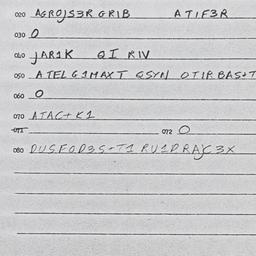 020 AGROJS3R GRIB ATIF3R
030 O
040 JAR1K QI RIV
050 ATEL G1MAXT QSYN OTIR BAS+T
060 O
070 ATAC+K1
071 072 O
080 DUSFOD3S+T1 RU1DRAJC3X